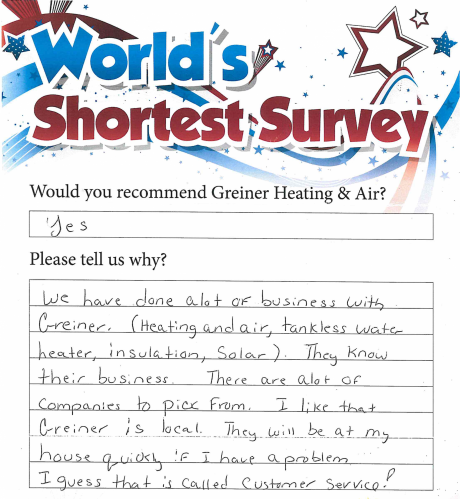 World's
Shortest Survey
Would you recommend Greiner Heating & Air?
Yes
Please tell us why?
We have done alot of business with
Greiner. (Heating and air, tankless water
heater, insulation, Solar). They know
their business. There are alot of
companies to pick from. I like that
Greiner is local. They will be at my
house quickly if I have a problem.
I guess that is called Customer Service!